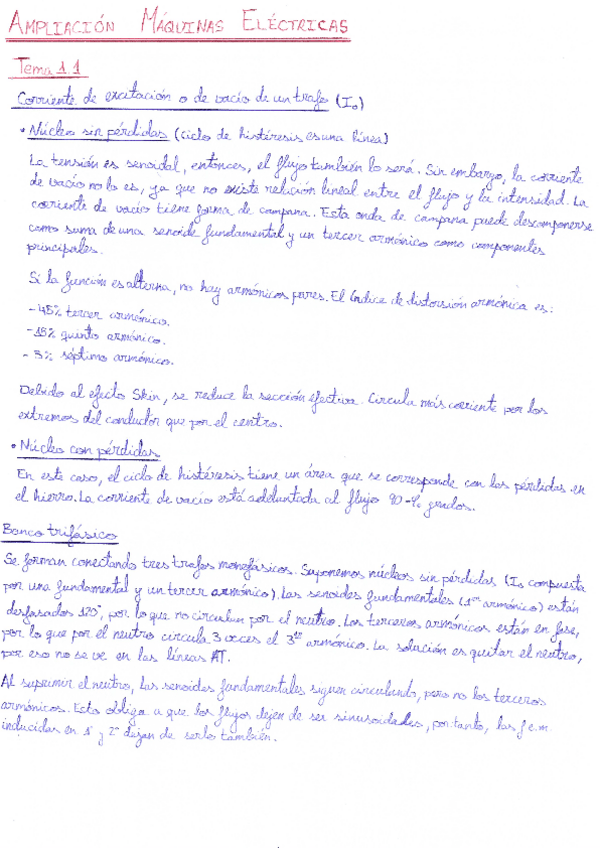 AMPLIACIÓN MÁQUINAS ELÉCTRICAS
Tema 1.1
Corriente de excitación o de vacío de un trafo (I₀)
• Núcleo sin pérdidas (ciclo de histéresis es una línea)
La tensión es senoidal, entonces, el flujo también lo será. Sin embargo, la corriente
de vacío no lo es, ya que no existe relación lineal entre el flujo y la intensidad. La
corriente de vacío tiene forma de campana. Esta onda de campana puede descomponerse
como suma de una senoide fundamental y un tercer armónico como componentes
principales.
Si la función es alterna, no hay armónicos pares. El índice de distorsión armónica es:
- 45% tercer armónico.
- 15% quinto armónico.
- 3% séptimo armónico.
Debido al efecto Skin, se reduce la sección efectiva. Circula más corriente por los
extremos del conductor que por el centro.
• Núcleo con pérdidas
En este caso, el ciclo de histéresis tiene un área que se corresponde con las pérdidas en
el hierro. La corriente de vacío está adelantada al flujo 90 - grados.
Banco trifásico
Se forman conectando tres trafos monofásicos. Suponemos núcleos sin pérdidas (I₀ compuesta
por una fundamental y un tercer armónico). Las senoides fundamentales (1er armónico) están
desfasadas 120°, por lo que no circulan por el neutro. Los terceros armónicos están en fase,
por lo que por el neutro circula 3 veces el 3er armónico. La solución es quitar el neutro,
por eso no se ve en las líneas AT.
Al suprimir el neutro, las senoides fundamentales siguen circulando, pero no los terceros
armónicos. Esto obliga a que los flujos dejen de ser sinusoidales, por tanto, las f.e.m.
inducidas en 1º y 2º dejan de serlo también.